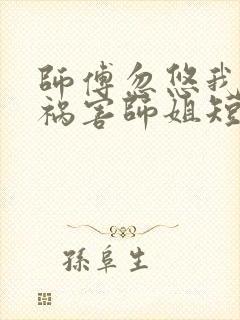 師傅忽悠我
禍害師姐短
孫阜生